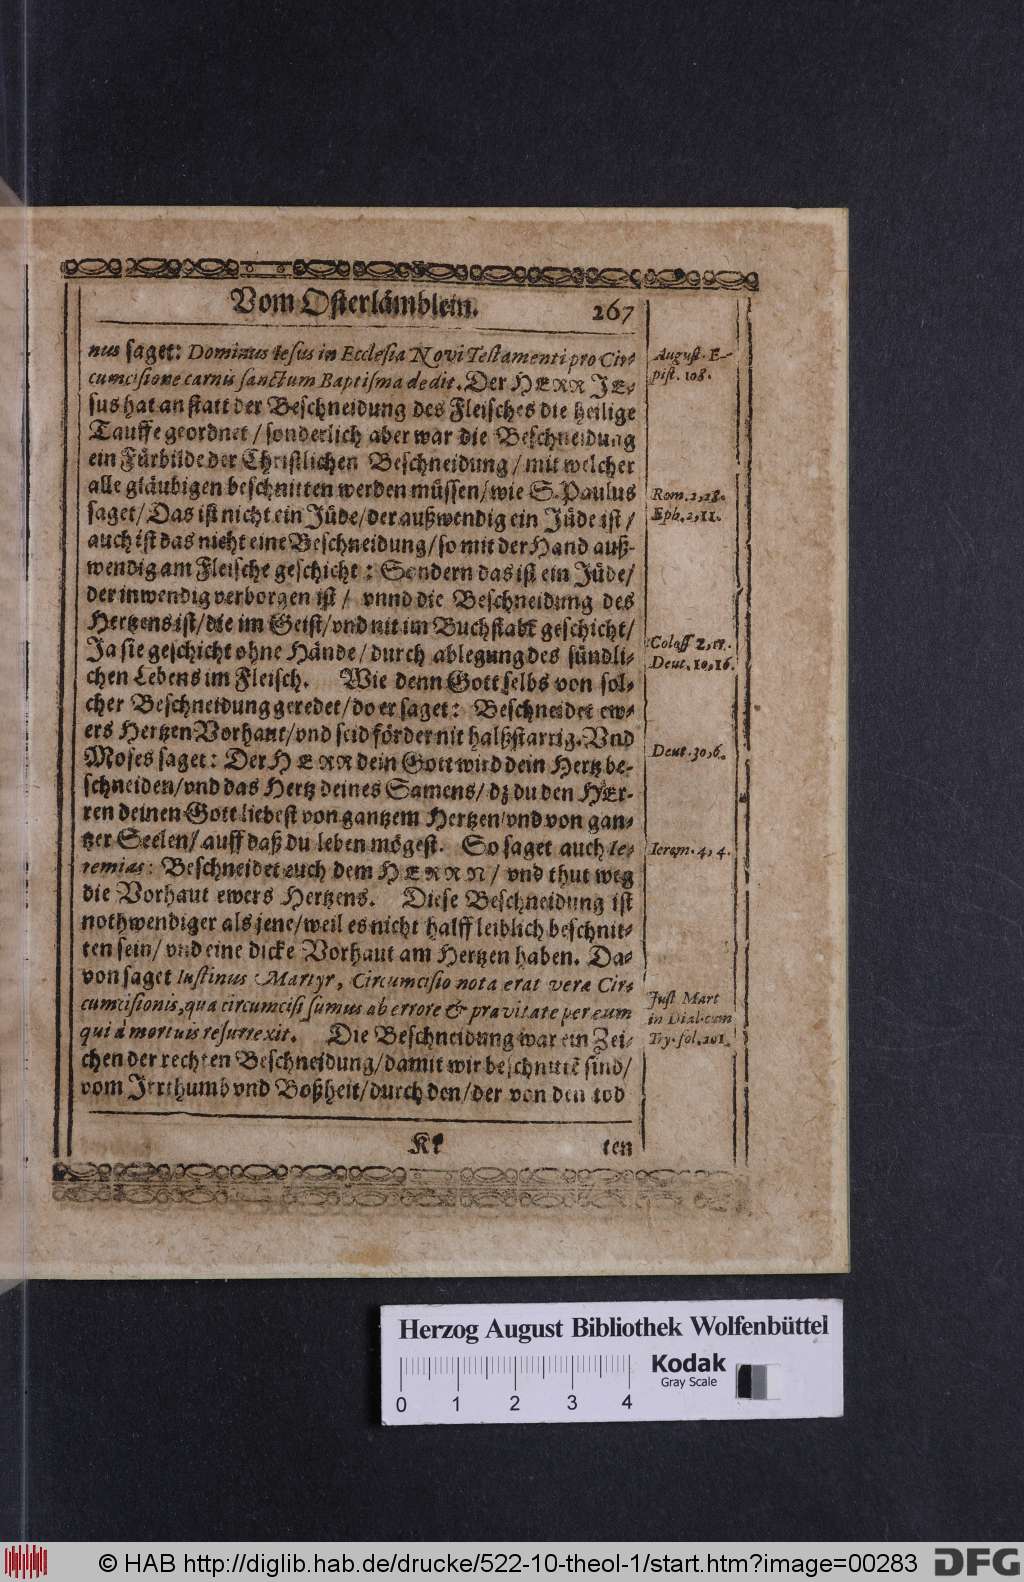 Vom Osterlämblein. 267
nus saget: Dominus Iesus in Ecclesia Novi Testamenti pro Cir-
cumcisione carnis sanctum Baptisma dedit. Der HERR JE-
sus hat an statt der Beschneidung des Fleisches die heilige
Tauffe geordnet / sonderlich aber war die Beschneidung
ein Fürbilde der Christlichen Beschneidung / mit welcher
alle gläubigen beschnitten werden müssen / wie S. Paulus
saget / Das ist nicht ein Jüde / der außwendig ein Jüde ist /
auch ist das nicht eine Beschneidung / so mit der Hand auß-
wendig am Fleische geschicht: Sondern das ist ein Jüde /
der inwendig verborgen ist / vnnd die Beschneidung des
Hertzens ist / die im Geist / vnd nit im Buchstabẽ geschicht /
Ja sie geschicht ohne Hände / durch ablegung des sündli-
chen Lebens im Fleisch. Wie denn Gott selbs von sol-
cher Beschneidung geredet / do er saget: Beschneidet ew-
ers Hertzen Vorhaut / vnd seidförder nit halßstarrig. Vnd
Moses saget: Der HERR dein Gott wird dein Hertz be-
schneiden / vnd das Hertz deines Samens / dz du den HEr-
ren deinen Gott liebest von gantzem Hertzen / vnd von gan-
tzer Seelen / auff daß du leben mögest. So saget auch Ie-
remias: Beschneidet euch dem HERRN / vnd thut weg
die Vorhaut ewers Hertzens. Diese Beschneidung ist
nothwendiger als jene / weil es nicht halff leiblich beschnit-
ten sein / vnd eine dicke Vorhaut am Hertzen haben. Da-
von saget Iustinus Martyr, Circumcisio nota erat veræ Cir-
cumcisionis, qua circumcisi sumus ab errore & pravitate per eum
qui à mortuis resurrexit. Die Beschneidung war ein Zei-
chen der rechten Beschneidung / damit wir beschnittẽ sind /
vom Irrthumb vnd Boßheit / durch den / der von den tod
Kk ten
August. E-
pist. 108.
Rom. 2, 28.
Eph. 2, 11.
Coloss 2, 11.
Deut. 10, 16.
Deut. 30, 6.
Ierem. 4, 4.
Just Mart
in Dial. cum
Try. fol. 201.
Herzog August Bibliothek Wolfenbüttel
Kodak
Gray Scale
0 1 2 3 4
© HAB http://diglib.hab.de/drucke/522-10-theol-1/start.htm?image=00283
DFG